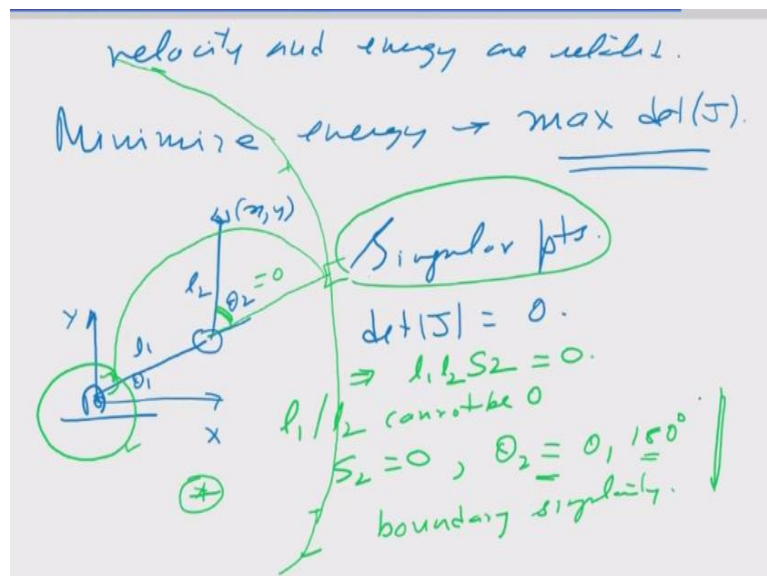 velocity and energy are related.
Minimize energy → max det(J).
(x,y)
Singular pts.
l2 θ2 = 0
Y l1 θ1
det|J| = 0.
⇒ l1 l2 S2 = 0.
X
l1/l2 cannot be 0
S2 = 0, θ2 = 0, 180°
*
boundary singularity.